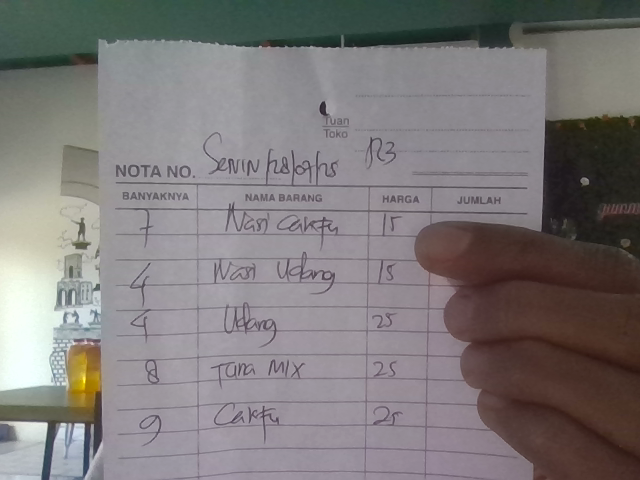 Tuan
Toko
NOTA NO. SENIN/28/07/25 R3
BANYAKNYA NAMA BARANG HARGA JUMLAH
7 Nasi Cakfu 15
4 Nasi Udang 15
4 Udang 25
8 Tana MIX 25
9 Cakfu 25